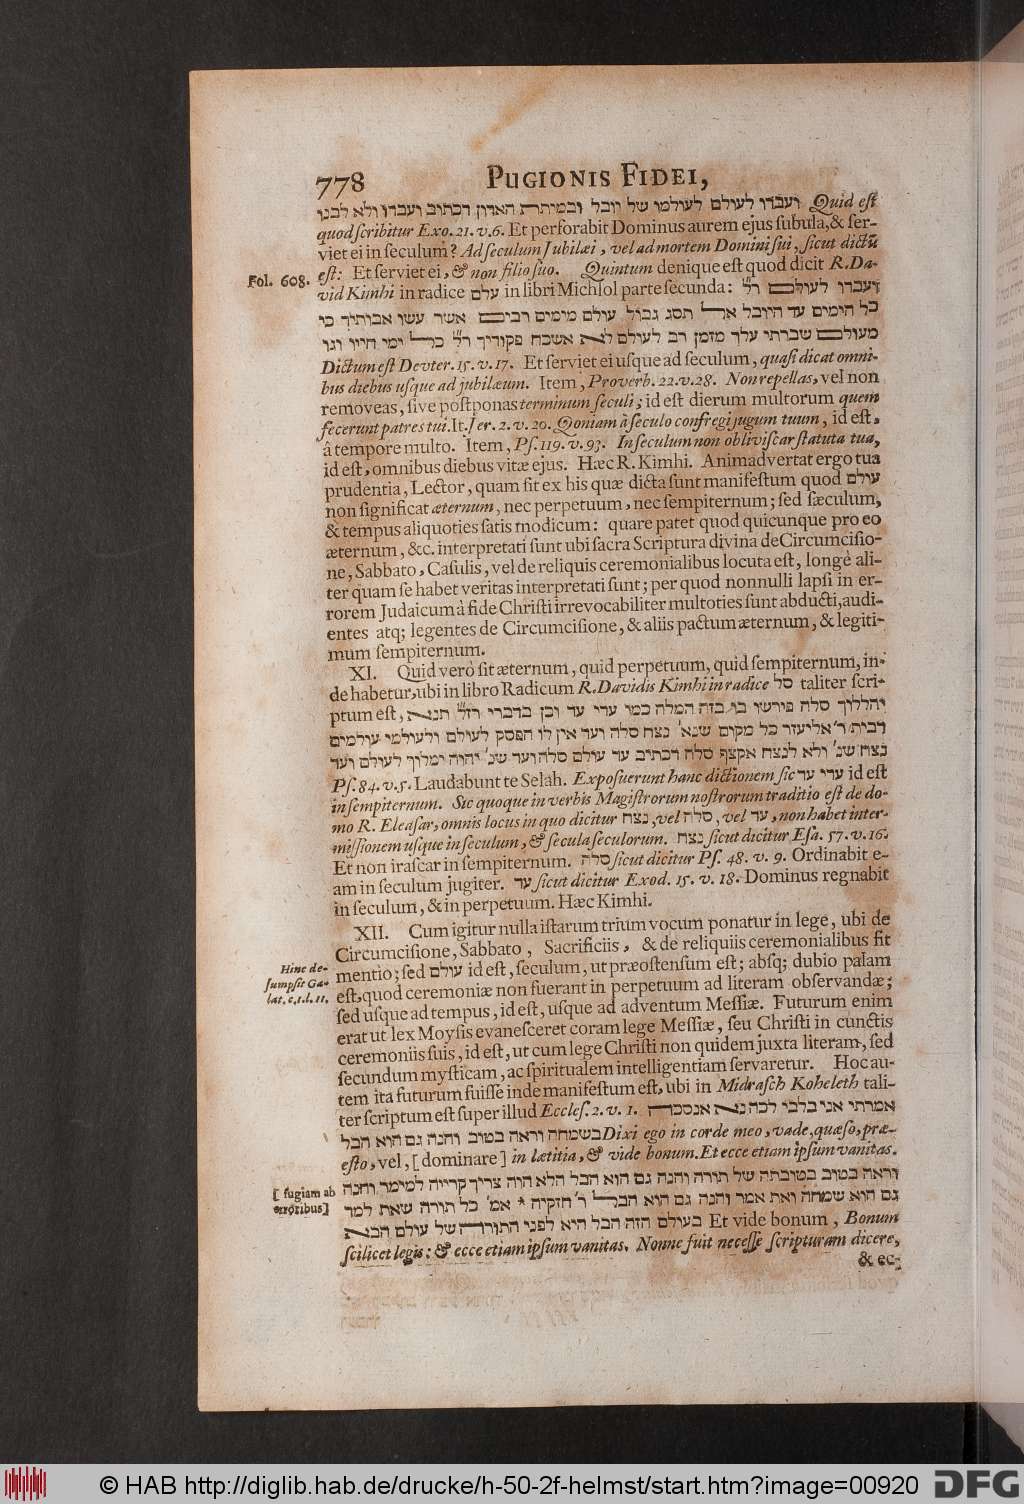 778 PUGIONIS FIDEI,
ועבדו לעולם לעולמו של יובל ובמיתת האדון דכתוב ועבדו ולא לבנו Quid est
quod scribitur Exo. 21. v. 6. Et perforabit Dominus aurem ejus subula, & ser-
viet ei in seculum? Ad seculum Jubilæi, vel ad mortem Domini sui, sicut dictũ
est: Et serviet ei, & non filio suo. Quintum denique est quod dicit R. Da-
Fol. 608.
vid Kimhi in radice עלם in libri Michlol parte secunda: ועבדו לעולם ר״ל
כל הימים עד היובל אל תסג גבול עולם מימים רבים אשר עשו אבותיך כי
מעולם שברתי עלך מזמן רב לעולם לא אשכח פקודיך ר״ל כל ימי חייו וגו
Dictum est Devter. 15. v. 17. Et serviet ei usque ad seculum, quasi dicat omni-
bus diebus usque ad jubilæum. Item, Proverb. 22. v. 28. Non repellas, vel non
removeas, sive postponas terminum seculi; id est dierum multorum quem
fecerunt patres tui. It. Jer. 2. v. 20. Qoniam à seculo confregi jugum tuum, id est,
â tempore multo. Item, Ps. 119. v. 93. In seculum non obliviscar statuta tua,
id est, omnibus diebus vitæ ejus. Hæc R. Kimhi. Animadvertat ergo tua
prudentia, Lector, quam sit ex his quæ dicta sunt manifestum quod עולם
non significat æternum, nec perpetuum, nec sempiternum; sed sæculum,
& tempus aliquoties satis modicum: quare patet quod quicunque pro eo
æternum, &c. interpretati sunt ubi sacra Scriptura divina de Circumcisio-
ne, Sabbato, Casulis, vel de reliquis ceremonialibus locuta est, longè ali-
ter quam se habet veritas interpretati sunt; per quod nonnulli lapsi in er-
rorem Judaicum à fide Christi irrevocabiliter multoties sunt abducti, audi-
entes atq; legentes de Circumcisione, & aliis pactum æternum, & legiti-
mum sempiternum.
XI. Quid verò sit æternum, quid perpetuum, quid sempiternum, in-
de habetur, ubi in libro Radicum R. Davidis Kimhi in radice סל taliter scri-
ptum est, יהללוך סלה פירשו בו בזה המלה כמו עדי עד וכן בדברי רז״ל תנא
דבית ר׳ אליעזר כל מקום שנא׳ נצח סלה ועד אין לו הפסק לעולם ולעולמי עולמים
נצח שנ׳ ולא לנצח אקצף סלה דכתיב עד עולם סלה ועד שנ׳ יהוה ימלוך לעולם ועד
Ps. 84. v. 5. Laudabunt te Selah. Exposuerunt hanc dictionem sic עדי עד id est
in sempiternum. Sic quoque in verbis Magistrorum nostrorum traditio est de do-
mo R. Eleasar, omnis locus in quo dicitur נצח, vel סלה, vel עד, non habet inter-
missionem usque in seculum, & secula seculorum. נצח sicut dicitur Esa. 57. v. 16.
Et non irascar in sempiternum. סלה sicut dicitur Ps. 48. v. 9. Ordinabit e-
am in seculum jugiter. עד sicut dicitur Exod. 15. v. 18. Dominus regnabit
in seculum, & in perpetuum. Hæc Kimhi.
XII. Cum igitur nulla istarum trium vocum ponatur in lege, ubi de
Circumcisione, Sabbato, Sacrificiis, & de reliquiis ceremonialibus fit
Hinc de-
sumpsit Ga-
lat. c. 1. l. 11.
mentio; sed עולם id est, seculum, ut præostensum est; absq; dubio palam
est, quod ceremoniæ non fuerant in perpetuum ad literam observandæ;
sed usque ad tempus, id est, usque ad adventum Messiæ. Futurum enim
erat ut lex Moysis evanesceret coram lege Messiæ, seu Christi in cunctis
ceremoniis suis, id est, ut cum lege Christi non quidem juxta literam, sed
secundum mysticam, ac spiritualem intelligentiam servaretur. Hoc au-
tem ita futurum fuisse inde manifestum est, ubi in Midrasch Koheleth tali-
ter scriptum est super illud Eccles. 2. v. 1. אמרתי אני בלבי לכה נא אנסכה
בשמחה וראה בטוב והנה גם הוא הבל Dixi ego in corde meo, vade, quæso, præ-
esto, vel, [dominare] in lætitia, & vide bonum. Et ecce etiam ipsum vanitas.
[ fugiam ab
erroribus]
וראה בטוב בטובתה של תורה והנה גם הוא הבל הלא הוה צריך קרייה למימר והנה
גם הוא שמחה ואת אמר והנה גם הוא הבל ר׳ חזקיה * אמ׳ כל תורה שאת למד
בעולם הזה הבל היא לפני התורה של עולם הבא Et vide bonum, Bonum
scilicet legis: & ecce etiam ipsum vanitas. Nonne fuit necesse scripturam dicere,
& ec-
© HAB http://diglib.hab.de/drucke/h-50-2f-helmst/start.htm?image=00920 DFG